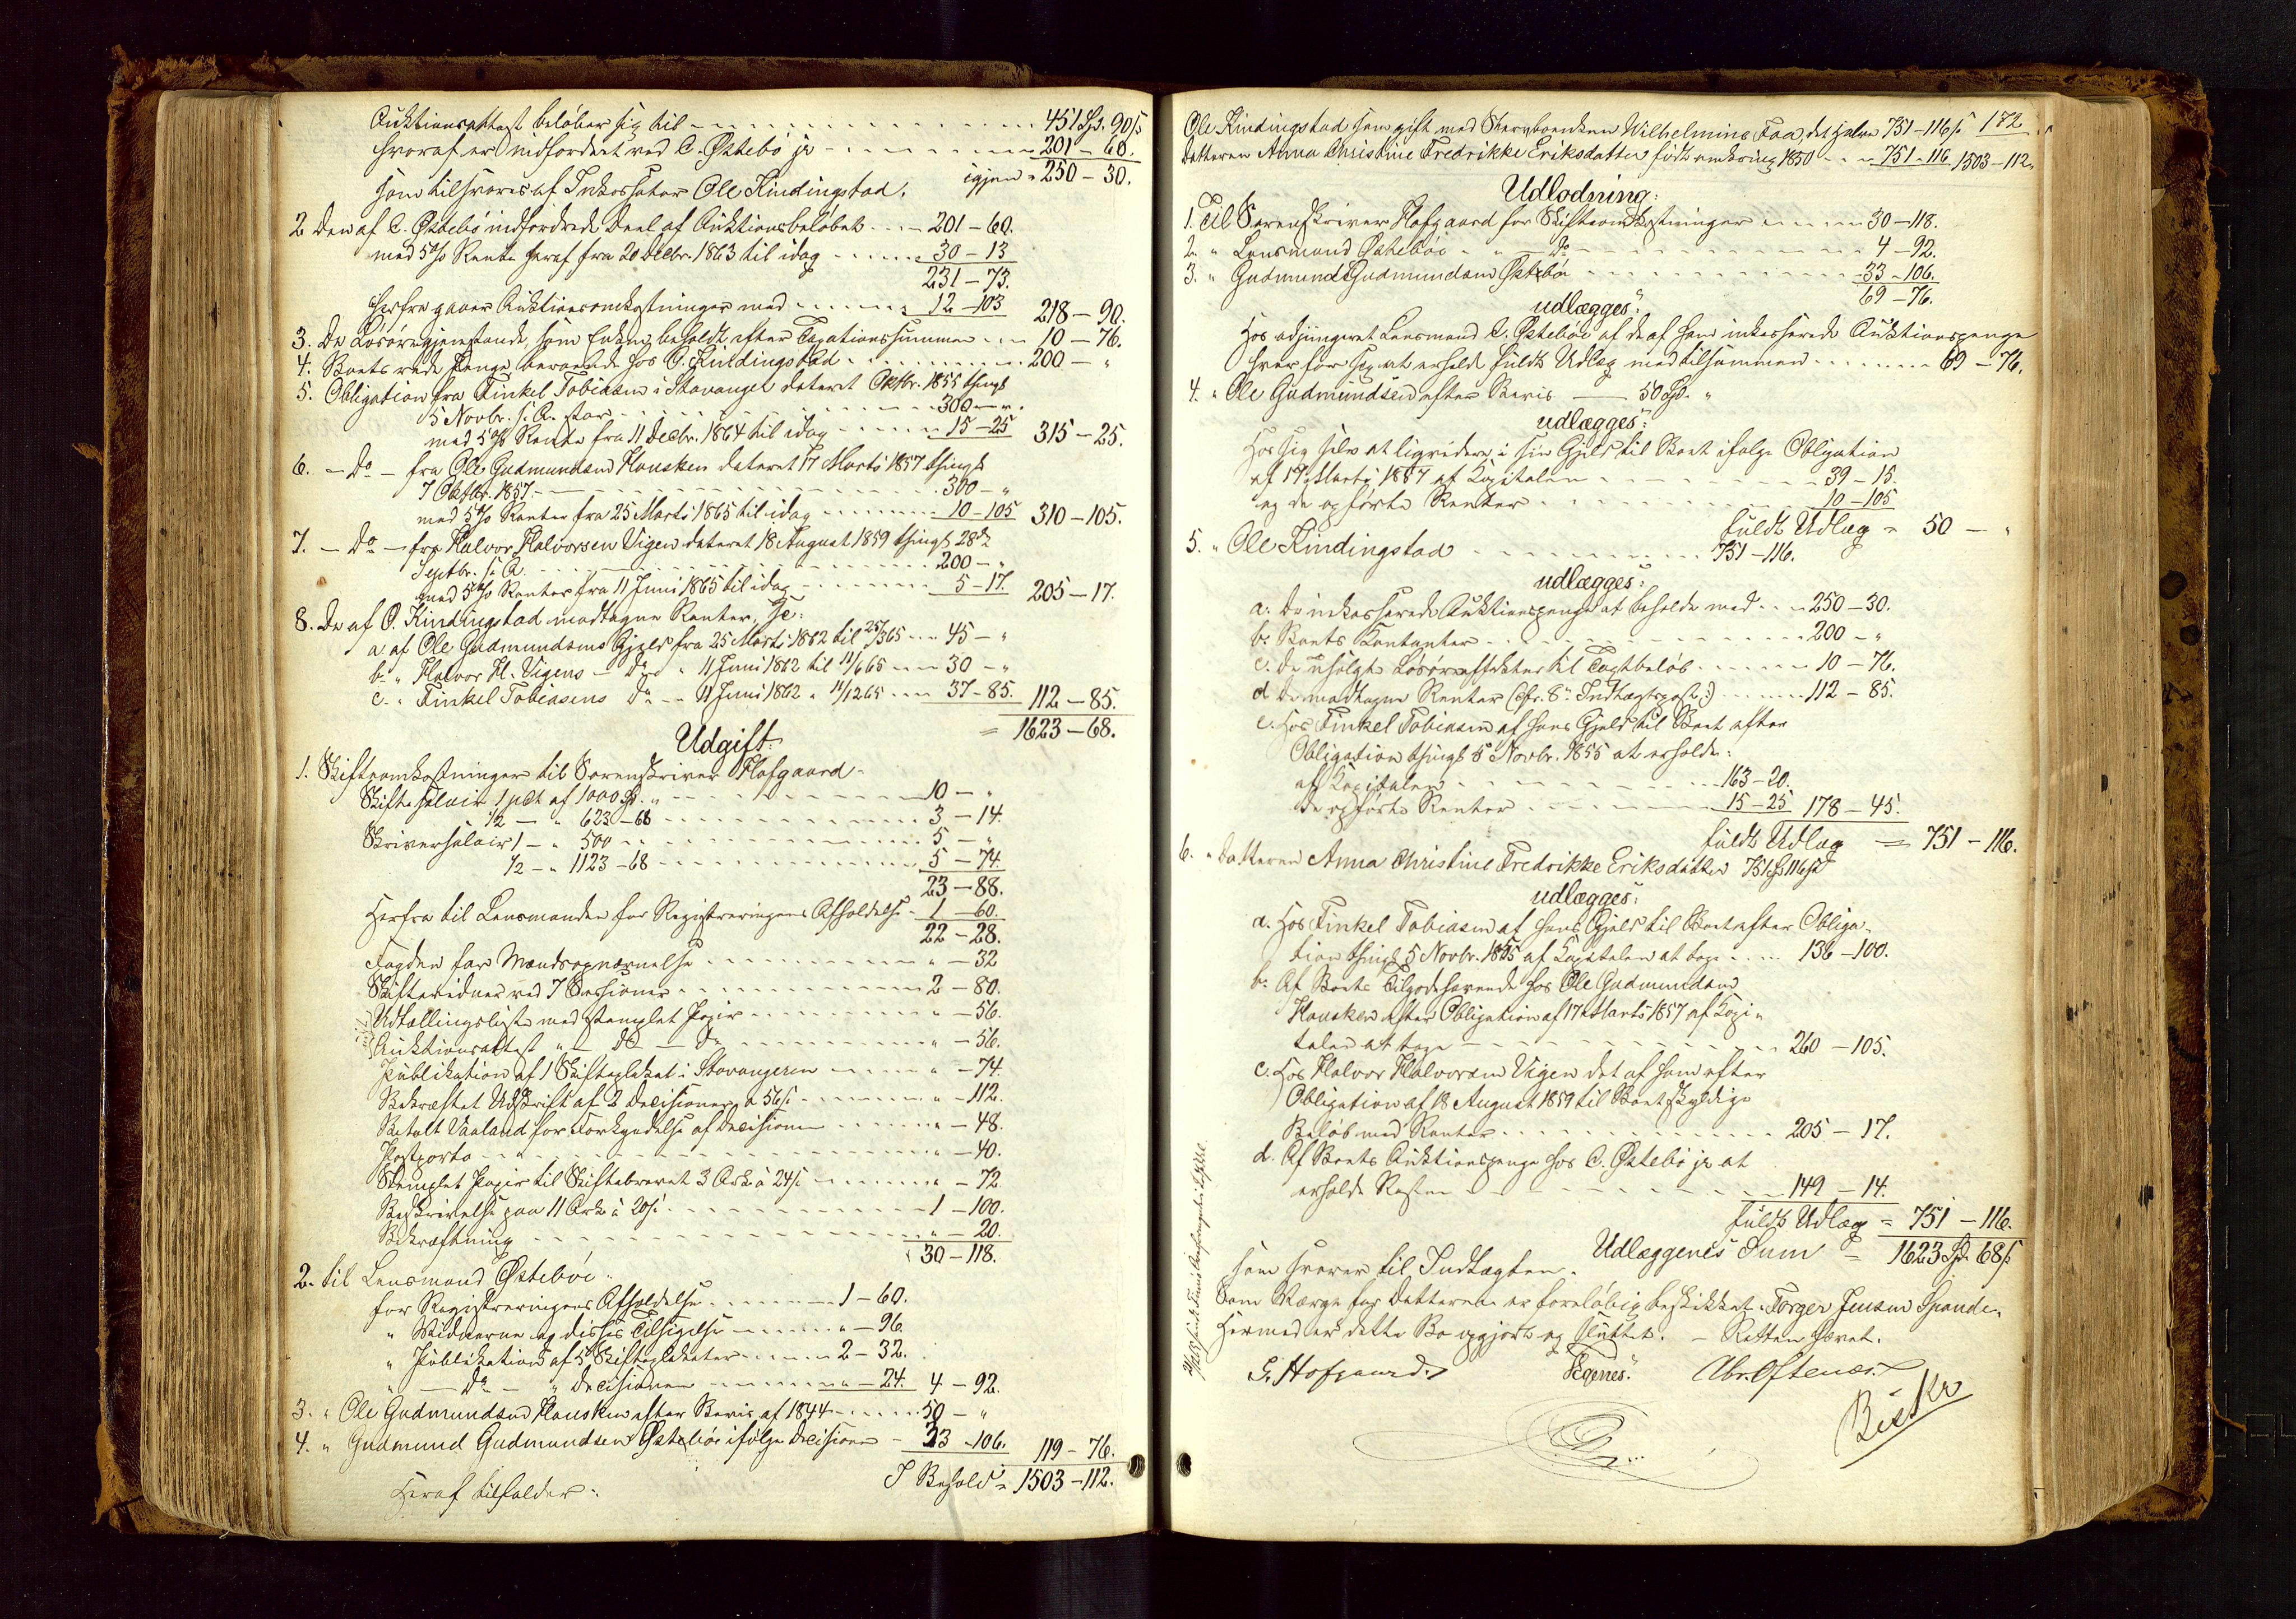 Auktionsattest beløber sig til - - - 451 Spd. 90 s
hvoraf er indfordret ved C. Østebø jr - - - 201 - 60.
som tilsvares af Inkassator Ole Kindingstad. igjen = 250 - 30.
2. Den af C. Østebø indfordrede Deel af Auktionsbeløbet - - 201 - 60.
med 5 % Rente heraf fra 20 Decbr. 1863 til idag - - - 30 - 13
231 - 73.
herfra gaaer Auktionsomkostninger med - - - 12 - 103 218 - 90.
3. De Løsøregjenstande, som Enken beholdt efter Taxationssummen - - 10 - 76.
4. Boets rede Penge beroende hos O. Kindingstad - - - 200 - "
5. Obligation fra Tinkel Tobiasen i Stavanger dateret Oktbr. 1855 thingl.
5 Novbr. s. A. stor - - - 300 - ".
med 5 % Rente fra 11 Decbr. 1864 til idag - - - 15 - 25 315 - 25.
6. - Do - fra Ole Gudmundsen Hausken dateret 17 Marts 1857 thingl.
7 Oktbr. 1857. - - - 300 - "
med 5 % Renter fra 25 Marts 1865 til idag - - - 10 - 105 310 - 105.
7. - Do - fra Halvor Halvorsen Vigen dateret 18 August 1859 thingl. 28de
Septbr. s. A. - - - 200 - "
med 5 % Renter fra 11 Juni 1865 til idag - - - 5 - 17. 205 - 17.
8. De af O. Kindingstad modtagne Renter,
a. af Ole Gudmundsens Gjæld fra 25 Marts 1862 til 25/3 65 - - 45 - "
b. " Halvor H. Vigens - Do " 11 Juni 1862 til 11/6 65 - - 30 - "
c. " Tinkel Tobiasens Do - - 11 Juni 1862 " 11/12 64 - - 37 - 85. 112 - 85.
= 1623 - 68.
Udgift.
1. Skifteomkostninger til Sorenskriver Hofgaard -
Skiftesalair 1 pCt af 1000 Spd. " - - - 10 - "
1/2 - " 623 - 68 - - - 3 - 14.
Skriversalair 1 - " 500 - - - 5 - "
1/2 - " 1123 - 68 - - - 5 - 74.
23 - 88.
Herfra til Lensmanden for Registreringens Afholdelse - 1 - 60.
22 - 28.
Fogden for Mændsopnævnelse - - - " - 32
Skiftevidner ved 7 Sessioner - - - 2 - 80.
Udtællingsliste med stemplet Papir - - - " - 56.
Auktionsattest " - do - do - - - " - 56.
Publikation af 1 Skifteplakat i Stavangeren - - - " - 74.
Bekræftet Udskrift af 2 Decisioner à 56 s - - - " - 112.
Betalt Vaaland for Forkyndelse af Decisionen - - - " - 48.
Postporto - - - " - 40.
Stemplet Papir til Skiftebrevet 3 Ark à 24 s - - - " - 72
Beskrivelse paa 11 Ark à 20 s - - - 1 - 100.
Bekræftning - - - " - 20.
30 - 118.
2. til Lensmand Østebøe:
for Registreringens Afholdelse - - - 1 - 60.
" Vidnerne og disses Tilsigelse - - - " - 96.
" Publikation af 5 Skifteplakater - - - 2 - 32.
" - Do - " Decisionen - - - " - 24. 4 - 92.
3. " Ole Gudmundsen Hausken efter Bevis af 1844 - - - 50 - "
4. " Gudmund Gudmundsen Østebøe ifølge Decisionen - 33 - 106. 119 - 76.
I Behold = 1503 - 112.
Heraf tilfalder:
Ole Kindingstad som gift med Stervboenken Wilhelmine Faa, det halve 751 - 116 s 172
Datteren Anna Christine Fredrikke Eriksdatter født omkring 1850 - - - 751 - 116 1503 - 112.
Udlodning:
1. Til Sorenskriver Hofgaard for Skifteomkostninger - - - 30 - 118.
2. " Lensmand Østebøe - " - Do - - - 4 - 92.
3. " Gudmund Gudmundsen Østebøe - - - 33 - 106.
69 - 76.
udlægges:
Hos adjungeret Lensmand C. Østebøe af de af ham inkasserede Auktionspenge
hver for sig at erholde fuldt Udlæg med tilsammen - - - 69 - 76.
4. " Ole Gudmundsen efter Bevis - 50 Spd. "
udlægges:
Hos sig selv at liqvidere i sin Gjæld til Boet ifølge Obligation
af 17 Marts 1857 af Kapitalen - - - 39 - 15.
og de opførte Renter - - - 10 - 105
fuldt Udlæg = 50 - "
5. " Ole Kindingstad - - - 751 - 116.
udlægges:
a. De inkasserede Auktionspenge at beholde med - - 250 - 30.
b. Boets Kontanter - - - 200 - "
c. De usolgte Løsøreeffekter til Taxtbeløb - - - 10 - 76.
d. De modtagne Renter (cfr. 8de Indtægtspost) - - - 112 - 85.
e. Hos Tinkel Tobiasen af hans Gjæld til Boet efter
Obligation thingl. 5 Novbr. 1855 at erholde:
af Kapitalen - - - 163 - 20.
de opførte Renter - - - 15 - 25 178 - 45.
fuldt Udlæg = 751 - 116.
6. " Datteren Anna Christine Fredrikke Eriksdatter 751 Spd 116 s
udlægges:
a. Hos Tinkel Tobiasen af hans Gjæld til Boet efter Obliga-
tion thingl. 5 Novbr. 1855 af Kapitalen at tage - - - 136 - 100.
b. Af Boets Tilgodehavende hos Ole Gudmundsen
Hausken efter Obligation af 17 Marts 1857 af Kapi-
talen at tage - - - 260 - 105.
c. Hos Halvor Halvorsen Vigen det af ham efter
Obligation af 18 August 1859 til Boet skyldige
Beløb med Renter - - - 205 - 17.
d. Af Boets Auktionspenge hos C. Østebø jr at
erholde Resten - - - 149 - 14.
fuldt Udlæg = 751 - 116.
Udlæggenes Sum = 1623 Spd. 68 s
som svarer til Indtægten.
Som Værge for Datteren er foreløbig beskikket Torger Jensen Spande.
Hermed er dette Bo opgjort og sluttet. - Retten hævet.
G. Hofgaard. Egenes. Abr. Oftenæs.